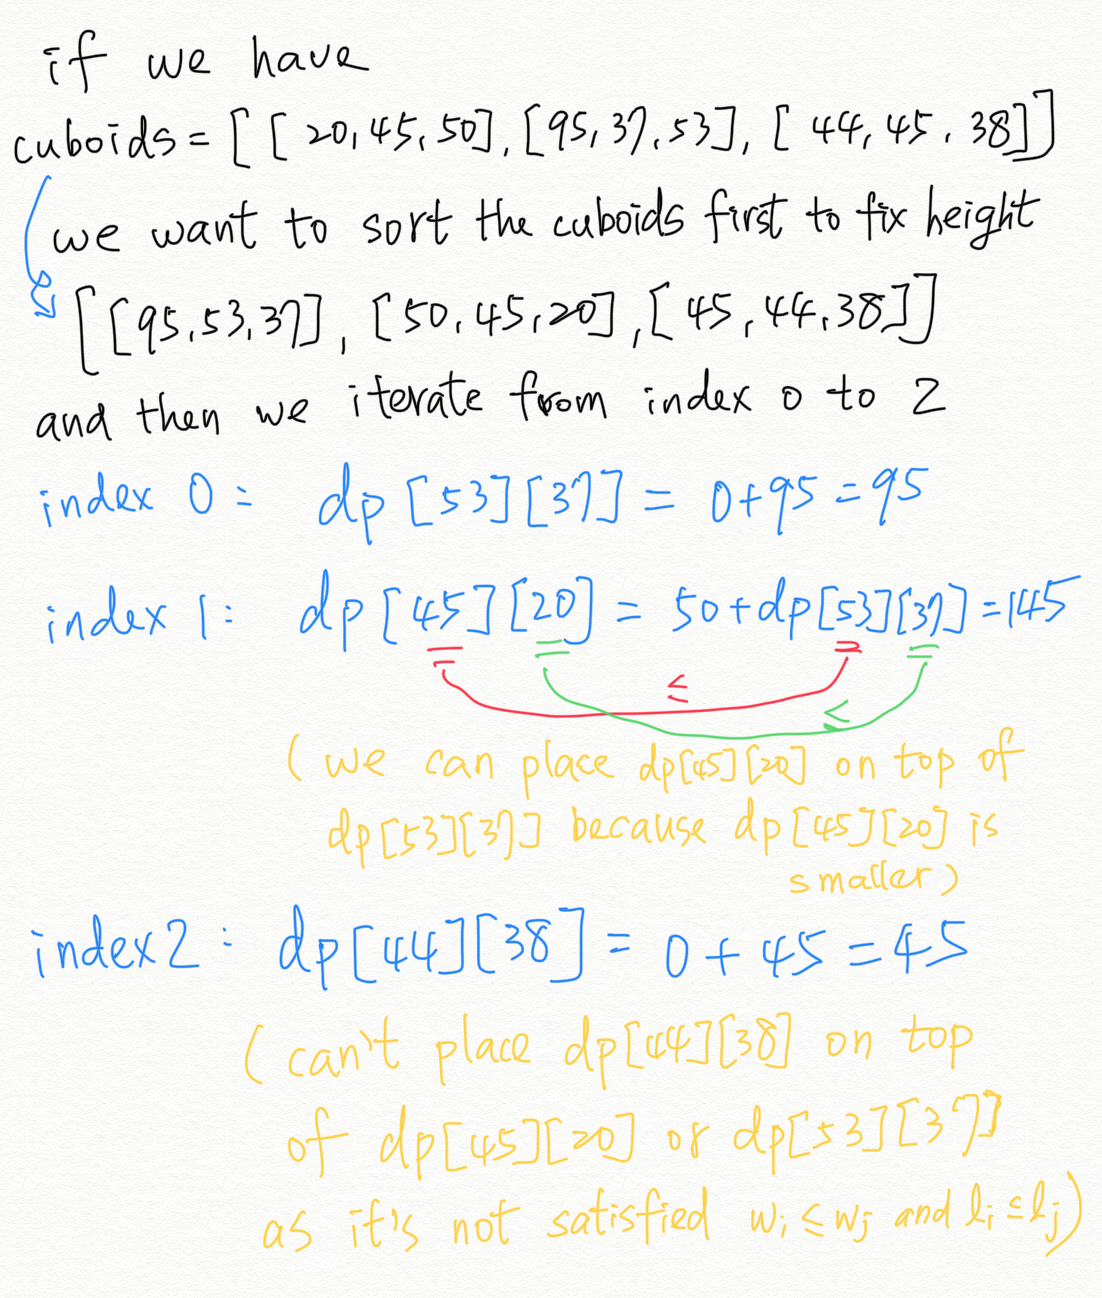 if we have
cuboids = [[20,45,50],[95,37,53],[44,45,38]]
we want to sort the cuboids first to fix height
[[95,53,37],[50,45,20],[45,44,38]]
and then we iterate from index 0 to 2
index 0: dp[53][37] = 0+95=95
index 1: dp[45][20] = 50+dp[53][37]=145
≤
≤
(we can place dp[45][20] on top of
dp[53][37] because dp[45][20] is
smaller)
index2: dp[44][38] = 0+45=45
(can't place dp[44][38] on top
of dp[45][20] or dp[53][37]
as it's not satisfied wi≤wj and li≤lj)